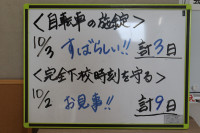 ＜自転車の施錠＞
10/3 すばらしい!! 計3日
＜完全下校時刻を守る＞
10/2 お見事!! 計9日